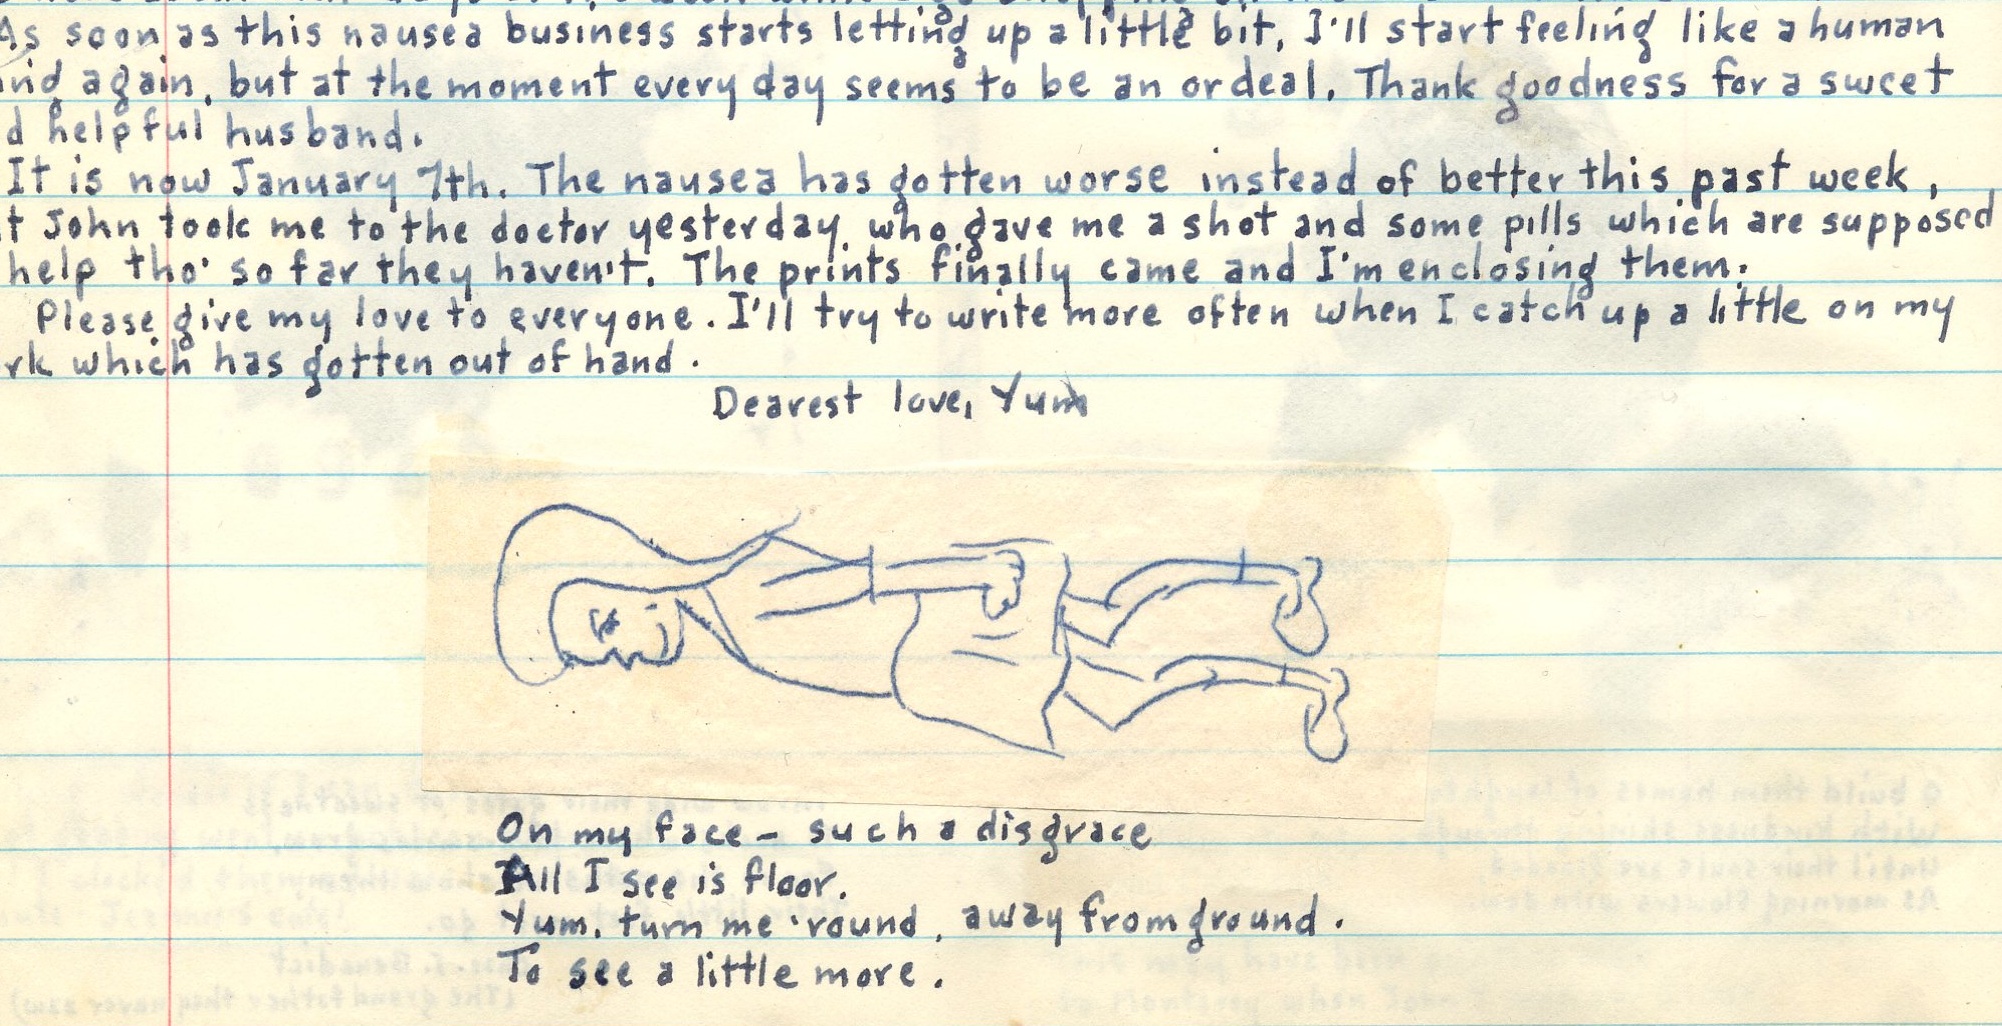 As soon as this nausea business starts letting up a little bit, I'll start feeling like a human
again, but at the moment every day seems to be an ordeal. Thank goodness for a sweet
helpful husband.
It is now January 7th. The nausea has gotten worse instead of better this past week,
John took me to the doctor yesterday, who gave me a shot and some pills which are supposed
help tho' so far they haven't. The prints finally came and I'm enclosing them.
Please give my love to everyone. I'll try to write more often when I catch up a little on my
which has gotten out of hand.
Dearest love, Yum
On my face – such a disgrace
All I see is floor.
Yum, turn me 'round, away from ground.
To see a little more.